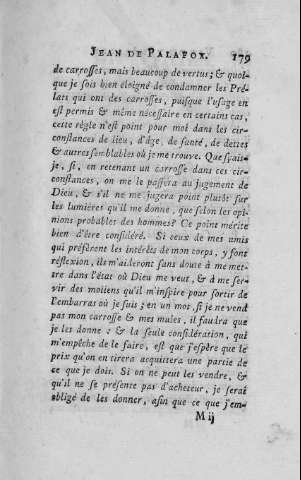 JEAN DE PALAFOX. 179
de carrosses, mais beaucoup de vertus; & quoi-
que je sois bien éloigné de condamner les Pré-
lats qui ont des carrosses, puisque l'usage en
est permis & même nécessaire en certains cas,
cette régle n'est point pour moi dans les cir-
constances de lieu, d'âge, de santé, de dettes
& autres semblables où je me trouve. Que sçais-
je, si, en retenant un carrosse dans ces cir-
constances, on me le passera au jugement de
Dieu, & s'il ne me jugera point plutôt sur
les lumiéres qu'il me donne, que selon les opi-
nions probables des hommes? Ce point mérite
bien d'être considéré. Si ceux de mes amis
qui préférent les intérêts de mon corps, y font
réflexion, ils m'aideront sans doute à me met-
tre dans l'état où Dieu me veut, & à me ser-
vir des moiiens qu'il m'inspire pour sortir de
l'embarras où je suis; en un mot, si je ne vend
pas mon carrosse & mes mules, il faudra que
je les donne: & la seule considération, qui
m'empêche de le faire, est que j'espère que le
prix qu'on en tirera acquittera une partie de
ce que je dois. Si on ne peut les vendre, &
qu'il ne se présente pas d'acheteur, je serai
obligé de les donner, afin que ce que j'em-
M ij